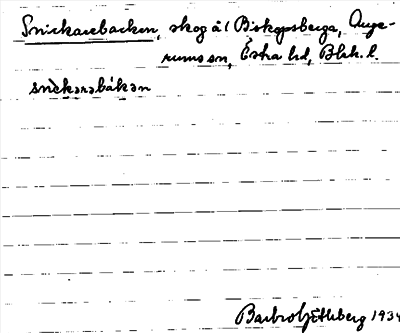 Snickarebacken, skog å 1 Biskopsberga, Auge-
rums sn, Östra hd, Blek. l.
snìckarabákan
Barbro Göthberg 1934